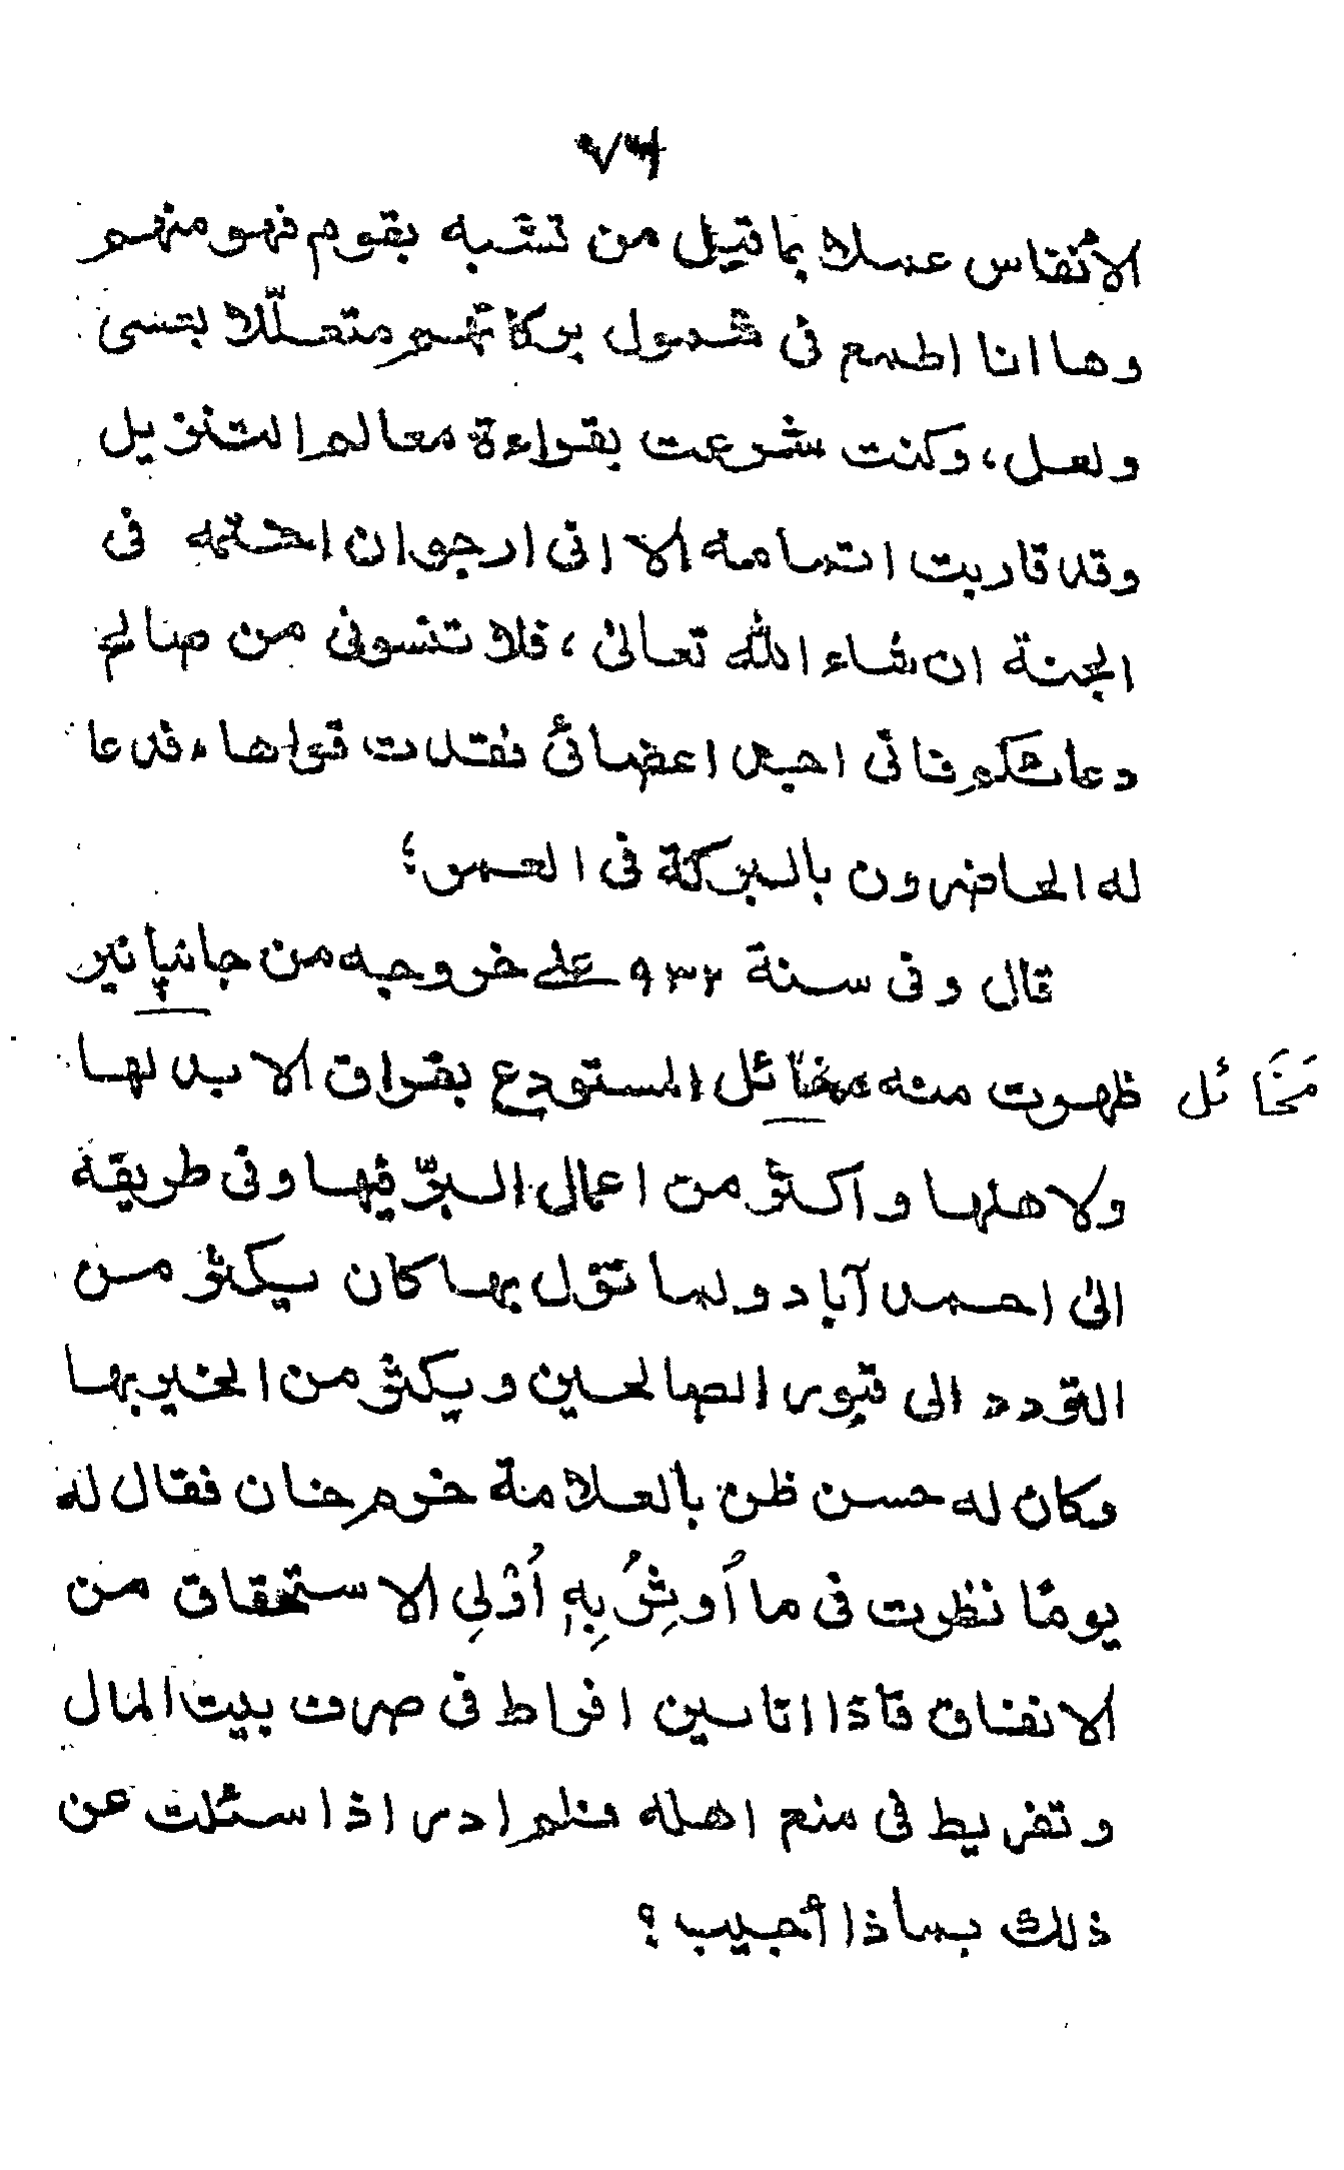 الأنفاس عملا بما قيل من تشبه بقوم فهو منهم
وها انا اطمع فى شمول بركاتهم متعلّلا بتسى
ولعل، وكنت شرعت بقراءة معالم التنزيل
وقد قاربت اتمامه الا انى ارجو ان اختمه فى
الجنة ان شاء الله تعالىٰ، فلا تنسونى من صالح
دعائكم فانى اجد اعضائى نقدت قواها، فدعا
له الحاضرون بالبركة فى العمر؛
قال وفى سنة ٩٣٢ علىٰ خروجه من جانپانير
ظهرت منه مخائل المستودع بفراق الا بد لها
مَخَائل
ولاهلها واكثر من اعمال البرّ فيها وفى طريقه
الىٰ احمد آباد ولما نزل بها كان يكثر من
التردد الى قبور الصالحين ويكثر من الخير بها
وكان له حسن ظن بالعلامة خرم خان فقال له
يومًا نظرت فى ما اُوثِرُ بِهٖ اُوْلِي الاستحقاق من
الانفاق فاذا انا بين افراط فى صرف بيت المال
وتفريط فى منع اهله فلم ادر اذا سئلت عن
ذلك بماذا أجيب؟